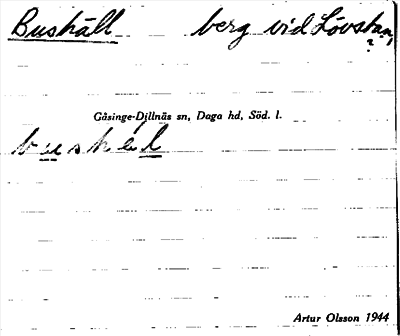 Bushäll berg vid Lövstan,
?
Gåsinge-Dillnäs sn, Daga hd, Söd. l.
bushel
Artur Olsson 1944